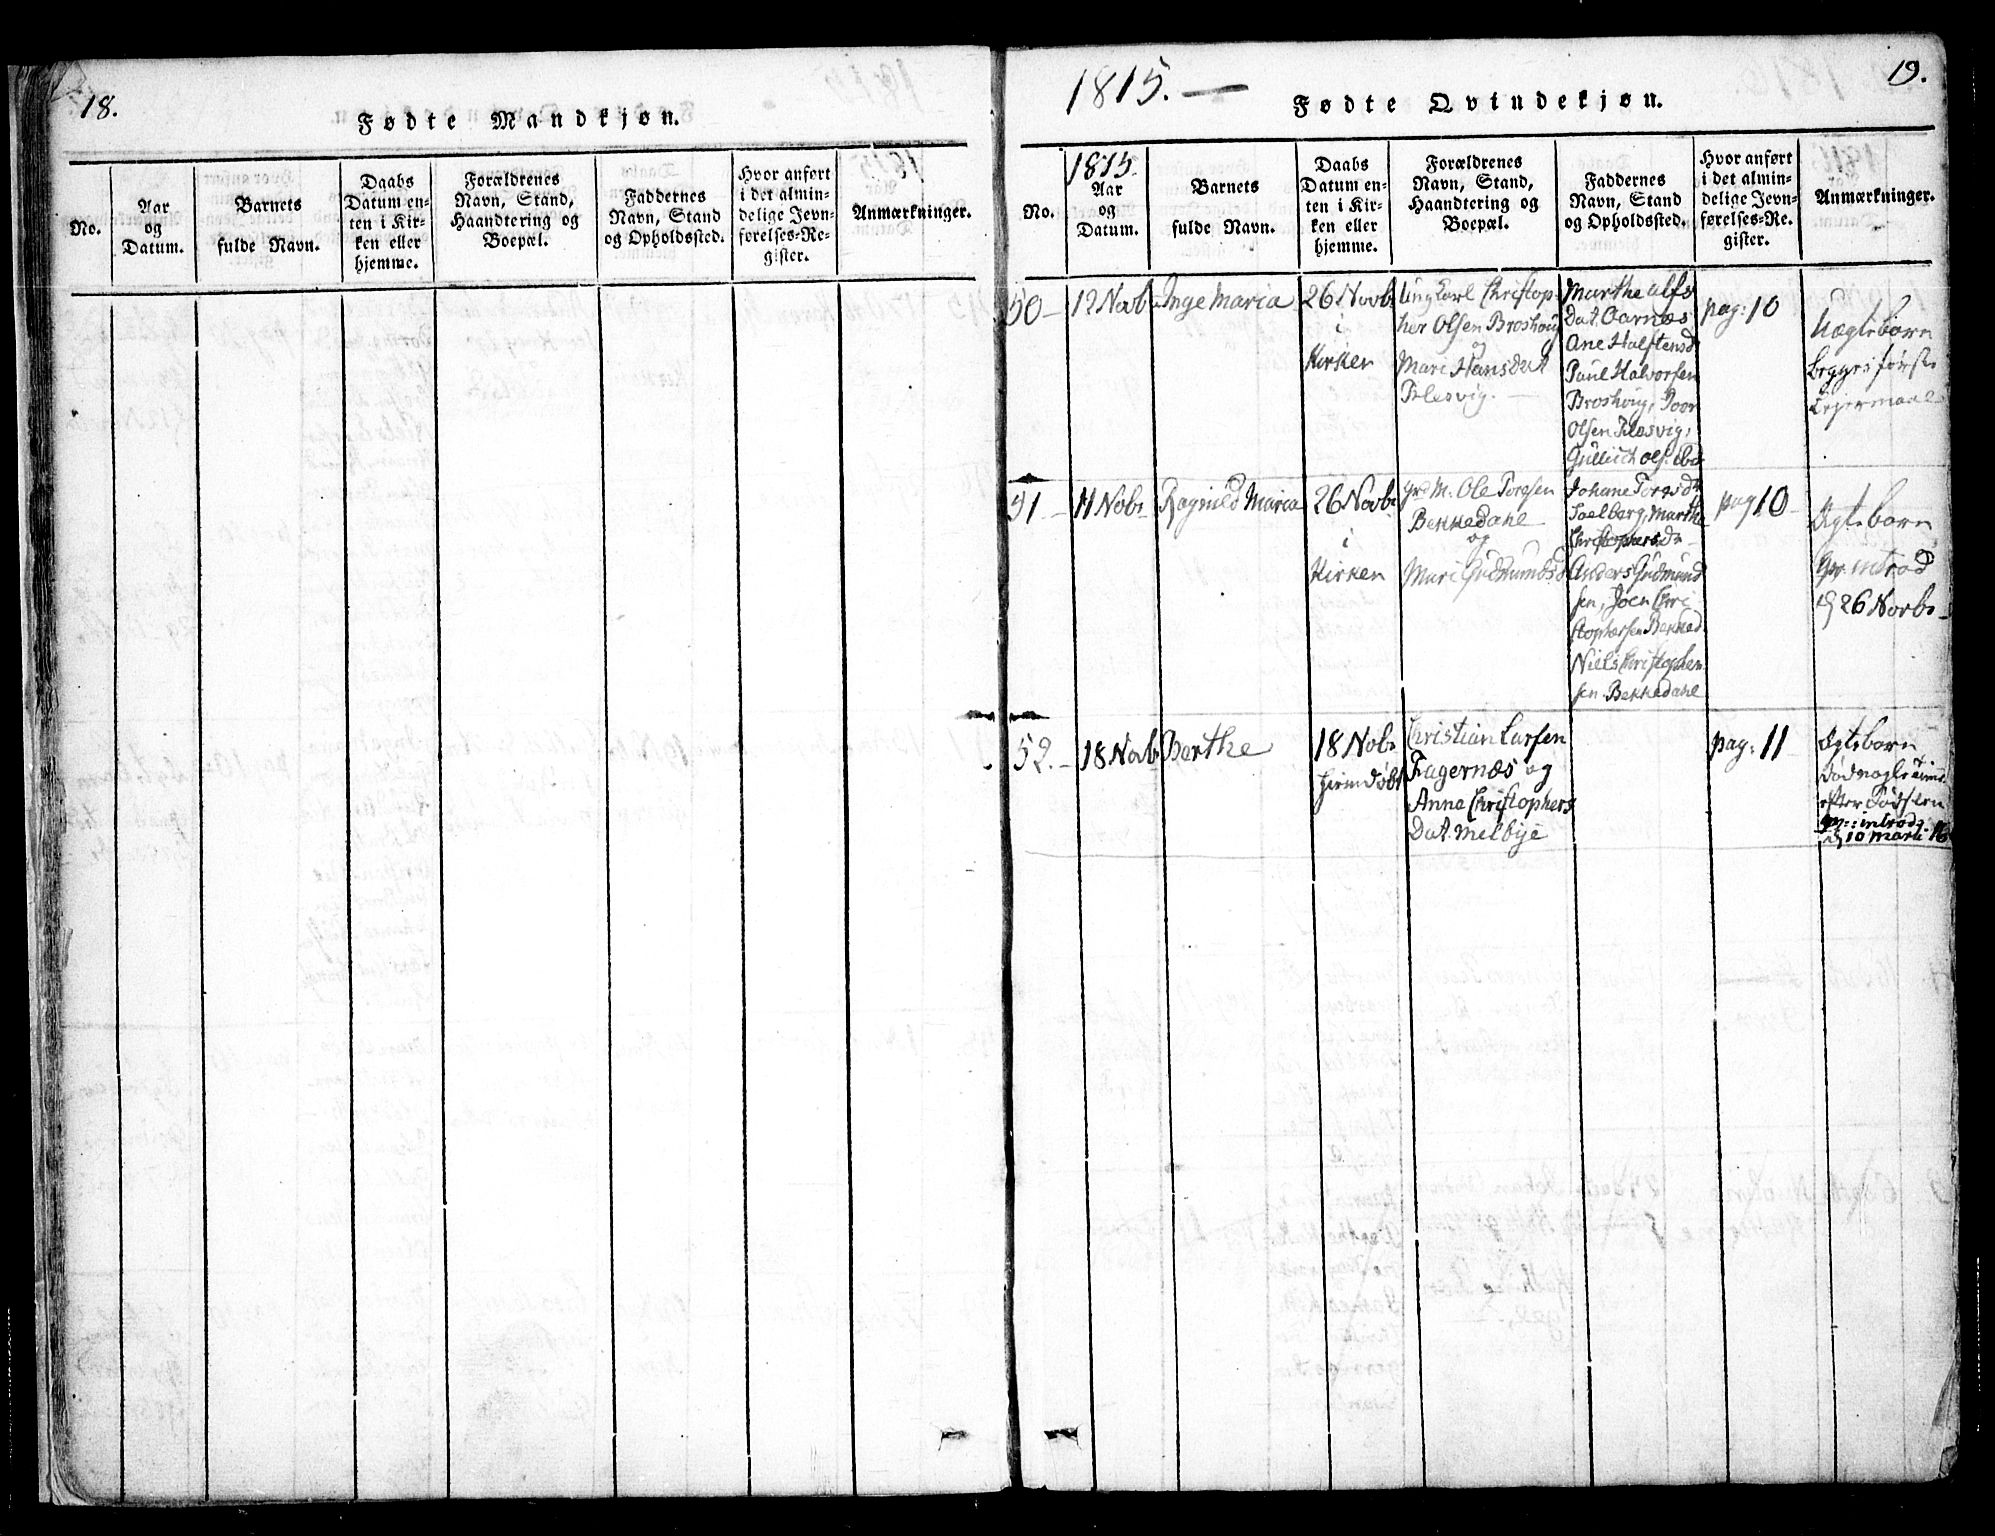 18.
Fødte Mandkjøn.
No.
Aar
og
Datum.
Barnets
fulde Navn.
Daabs
Datum en-
ten i Kir-
ken eller
hjemme.
Forældrenes
Navn, Stand,
Haandtering og
Boepæl.
Faddernes
Navn, Stand
og Opholdssted.
Hvor anført
i det almin-
delige Jevn-
førelses-Re-
gister.
Anmærkninger.
1815. —
19.
Fødte Qvindekjøn.
No.
1815.
Aar
og
Datum.
Barnets
fulde Navn.
Daabs
Datum en-
ten i Kir-
ken eller
hjemme.
Forældrenes
Navn, Stand,
Haandtering og
Boepæl.
Faddernes
Navn, Stand
og Opholdssted.
Hvor anført
i det almin-
delige Jevn-
førelses-Re-
gister.
Anmærkninger.
50
12 Novb.
Inge Maria
26 Novb.
i
Kirken
Ungkarl Christop-
her Olsen Broshoug
og
Mari Hansdat
Plesvig.
Marthe Alfs
Dat. Garnæs
Ane Halstensd
Paul Halvorsen
Broshoug, Joor
Olsen Plesvig,
Gulich Ols. ibd
pag: 10
Uægtebarn
begges første
Lejermaal
51
11 Nobr
Ragnild Maria
26 Novbr
i
Kirken
Grd M. Ole Toresen
Bekkedahl
og
Mari Gudmundsd
Johane Toresdr
Soelberg, Marthe
Christophersdr
Anders Gudmund
sen, Joen Chri
stophersen Bekked
Niels Christopher
sen Bekkedahl
pag 10
Ægtebarn
introd
26 Novbr
52.
18 Novb.
Berthe
18 Nobr
hiemdøbt
Christian Larsen
Fagernæs og
Anna Christophers
Dat. Melbye
pag: 11
Ægtebarn
død nogle Time
efter Fødselen
introd:
10 Marti 16